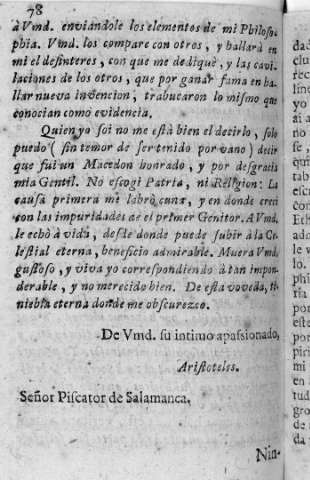 78
à Vmd. enviandole los elementos de mi Philoso-
phia. Vmd. los compare con otros, y hallarà en
mi el desinteres, con que me dediquè, y las cavi-
laciones de los otros, que por ganar fama en ha-
llar nueva invencion, trabucaron lo mismo que
conocian como evidencia.
Quien yo soi no me està bien el decirlo, solo
puedo (sin temor de ser tenido por vano) decir
que fui un Macedon honrado, y por desgracia
mia Gentil. No escogi Patria, ni Religion: La
causa primera me labrò cuna, y en donde creci
con las impuridades de el primer Genitor. A Vmd.
le echò à vida, desde donde puede subir à la Ce-
lestial eterna, beneficio admirable. Muera Vmd.
gustoso, y viva yo correspondiendo à tan impon-
derable, y no merecido bien. De esta voveda, ti-
niebla eterna donde me obscurezco.
De Vmd. su intimo apassionado,
Aristoteles.
Señor Piscator de Salamanca.
Nin-